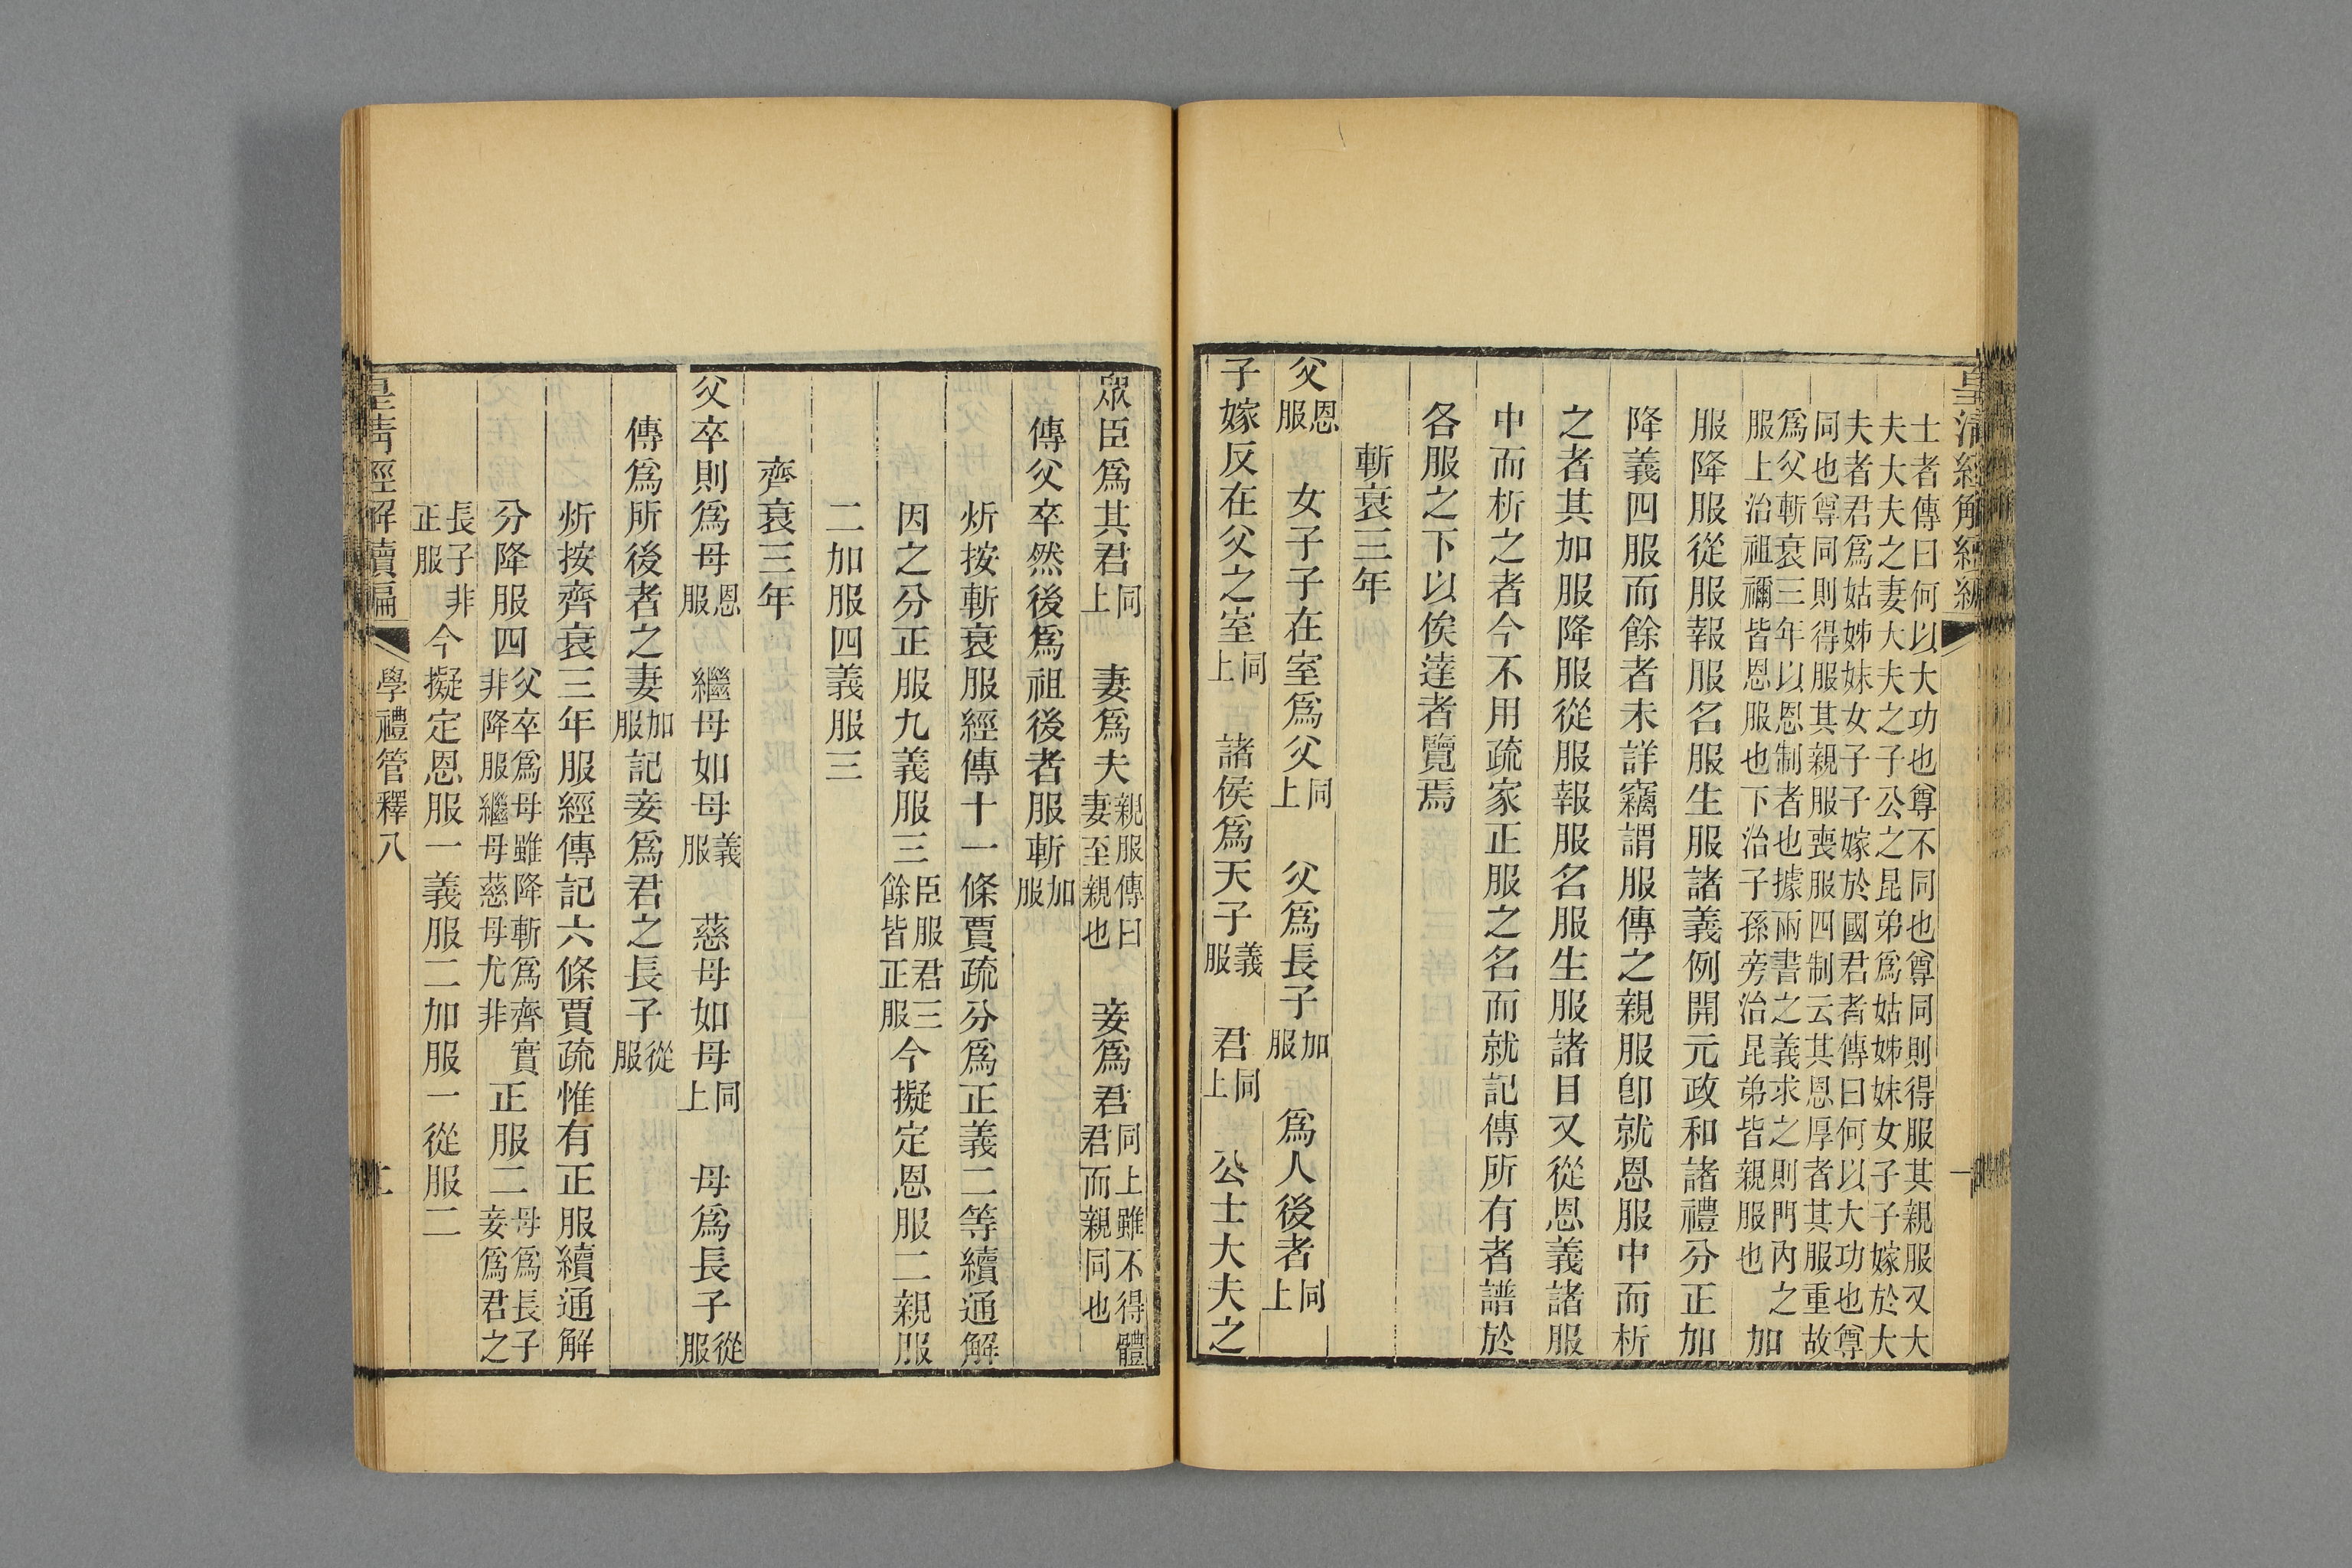 士者傳曰何以大功也尊不同也尊同則得服其親服又大
夫大夫之妻大夫之子公之昆弟爲姑姊妹女子子嫁於大
夫者君爲姑姊妹女子子嫁於國君者傳曰何以大功也尊
同也尊同則得服其親服喪服四制云其恩厚者其服重故
爲父斬衰三年以恩制者也據兩書之義求之則門內之
服上治祖禰皆恩服也下治子孫旁治昆弟皆親服也 加
服降服從服報服名服生服諸義例開元政和諸禮分正加
降義四服而餘者未詳竊謂服傳之親服卽就恩服中而析
之者其加服降服從服報服名服生服諸目又從恩義諸服
中而析之者今不用疏家正服之名而就記傳所有者譜於
各服之下以俟達者覽焉
斬衰三年
父恩服 女子子在室爲父同上 父爲長子加服 爲人後者同上
子嫁反在父之室同上 諸侯爲天子義服 君同上 公士大夫之
眾臣爲其君同上 妻爲夫親服傳曰妻至親也 妾爲君同上雖不得體君而親同也
傳父卒然後爲祖後者服斬加服
炘按斬衰服經傳十一條賈疏分爲正義二等續通解
因之分正服九義服三臣服君三餘皆正服今擬定恩服二親服
二加服四義服三
齊衰三年
父卒則爲母恩服 繼母如母義服 慈母如母同上 母爲長子從服
傳爲所後者之妻加服記妾爲君之長子從服
炘按齊衰三年服經傳記六條賈疏惟有正服續通解
分降服四父卒爲母雖降斬爲齊實非降服繼母慈母尤非正服二母爲長子妾爲君之
長子非正服今擬定恩服一義服二加服一從服二
皇清經解續編 學禮管釋八